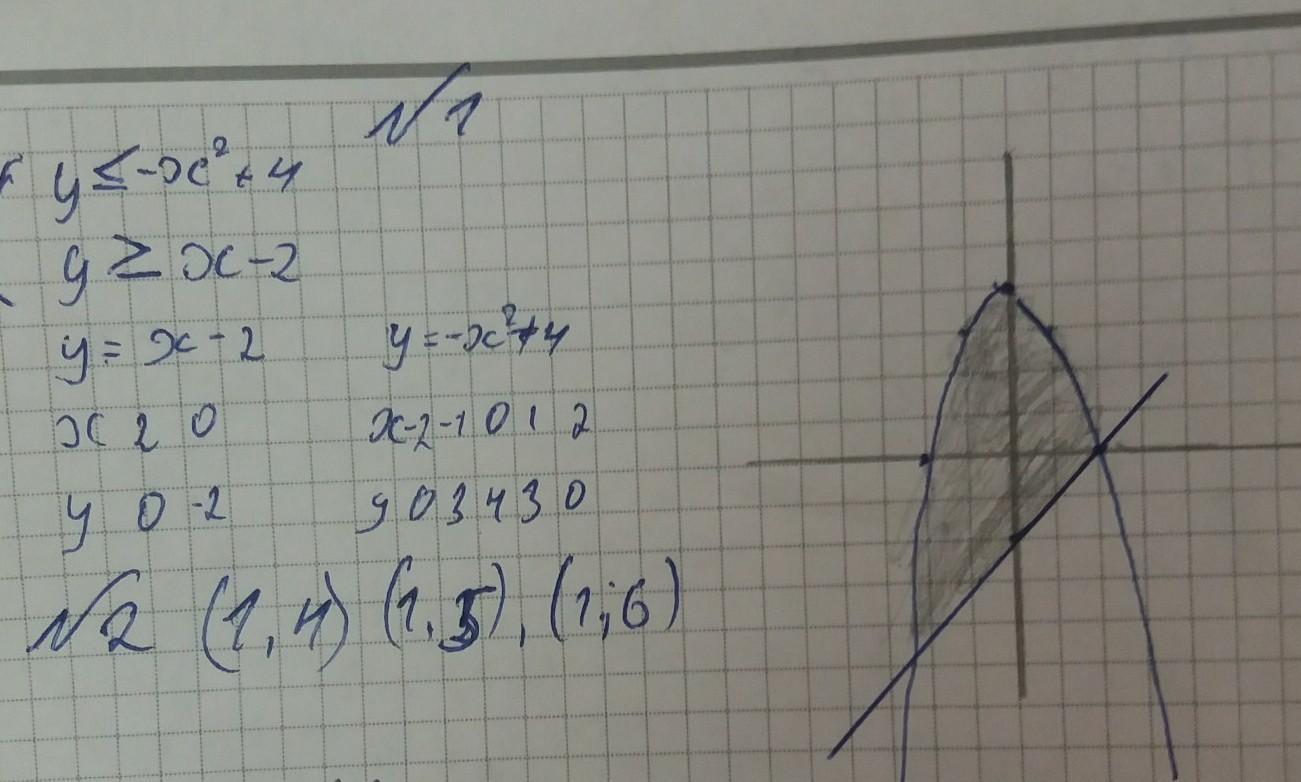 №1
y ≤ -x² + 4
y ≥ x - 2
y = x - 2 y = -x² + 4
x 2 0 x -2 -1 0 1 2
y 0 -2 y 0 3 4 3 0
№2 (1, 4) (1, 5), (1; 6)